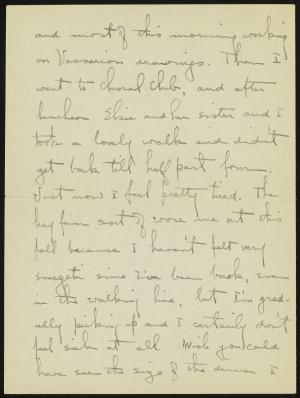 and most of this morning working
on Vassarion drawings. Then I
went to Choral Club, and after
luncheon Elsie and her sister and I
took a lovely walk and didn't
get back till half past four.
Just now I feel pretty tired. The
hay fever sort of wore me out this
fall because I haven't felt very
energetic since I've been back, even
in the walking line, but I'm grad-
ually picking up and I certainly don't
feel sick at all. Wish you could
have seen the size of the dinner I